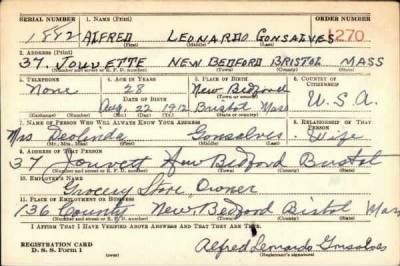 SERIAL NUMBER 1. NAME (Print) ORDER NUMBER
1882 ALFRED LEONARDO GONSALVES 1270
(First) (Middle) (Last)
2. ADDRESS (Print)
37. JOUVETTE NEW BEDFORD BRISTOL MASS
(Number and street or R. F. D. number) (Town) (County) (State)
3. TELEPHONE 4. AGE IN YEARS 5. PLACE OF BIRTH 6. COUNTRY OF CITIZENSHIP
None 28 New Bedford
DATE OF BIRTH (Town or county)
Aug. 22 1912 Bristol Mass U.S.A.
(Exchange) (Number) (Mo.) (Day) (Yr.) (State or country)
7. NAME OF PERSON WHO WILL ALWAYS KNOW YOUR ADDRESS 8. RELATIONSHIP OF THAT PERSON
Mrs Deolinda Gonsalves Wife
(Mr., Mrs., Miss) (First) (Middle) (Last)
9. ADDRESS OF THAT PERSON
37 Jouvett New Bedford Bristol
(Number and street or R. F. D. number) (Town) (County) (State)
10. EMPLOYER'S NAME
Grocery Store Owner
11. PLACE OF EMPLOYMENT OR BUSINESS
136 County New Bedford Bristol Mass
(Number and street or R. F. D. number) (Town) (County) (State)
I AFFIRM THAT I HAVE VERIFIED ABOVE ANSWERS AND THAT THEY ARE TRUE.
REGISTRATION CARD
D. S. S. Form 1 Alfred Leonardo Gonsalves
(over) (Registrant's signature)